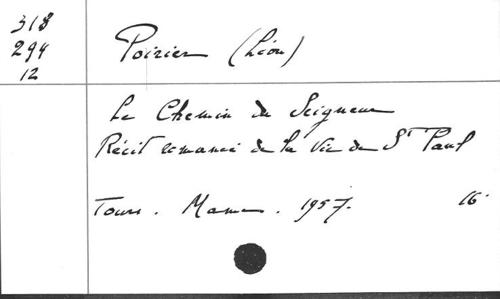 318
294
12
Poirier (Léon)
Le Chemin du Seigneur
Récit romancé de la Vie de St Paul
Tours. Mame. 1957. 16°